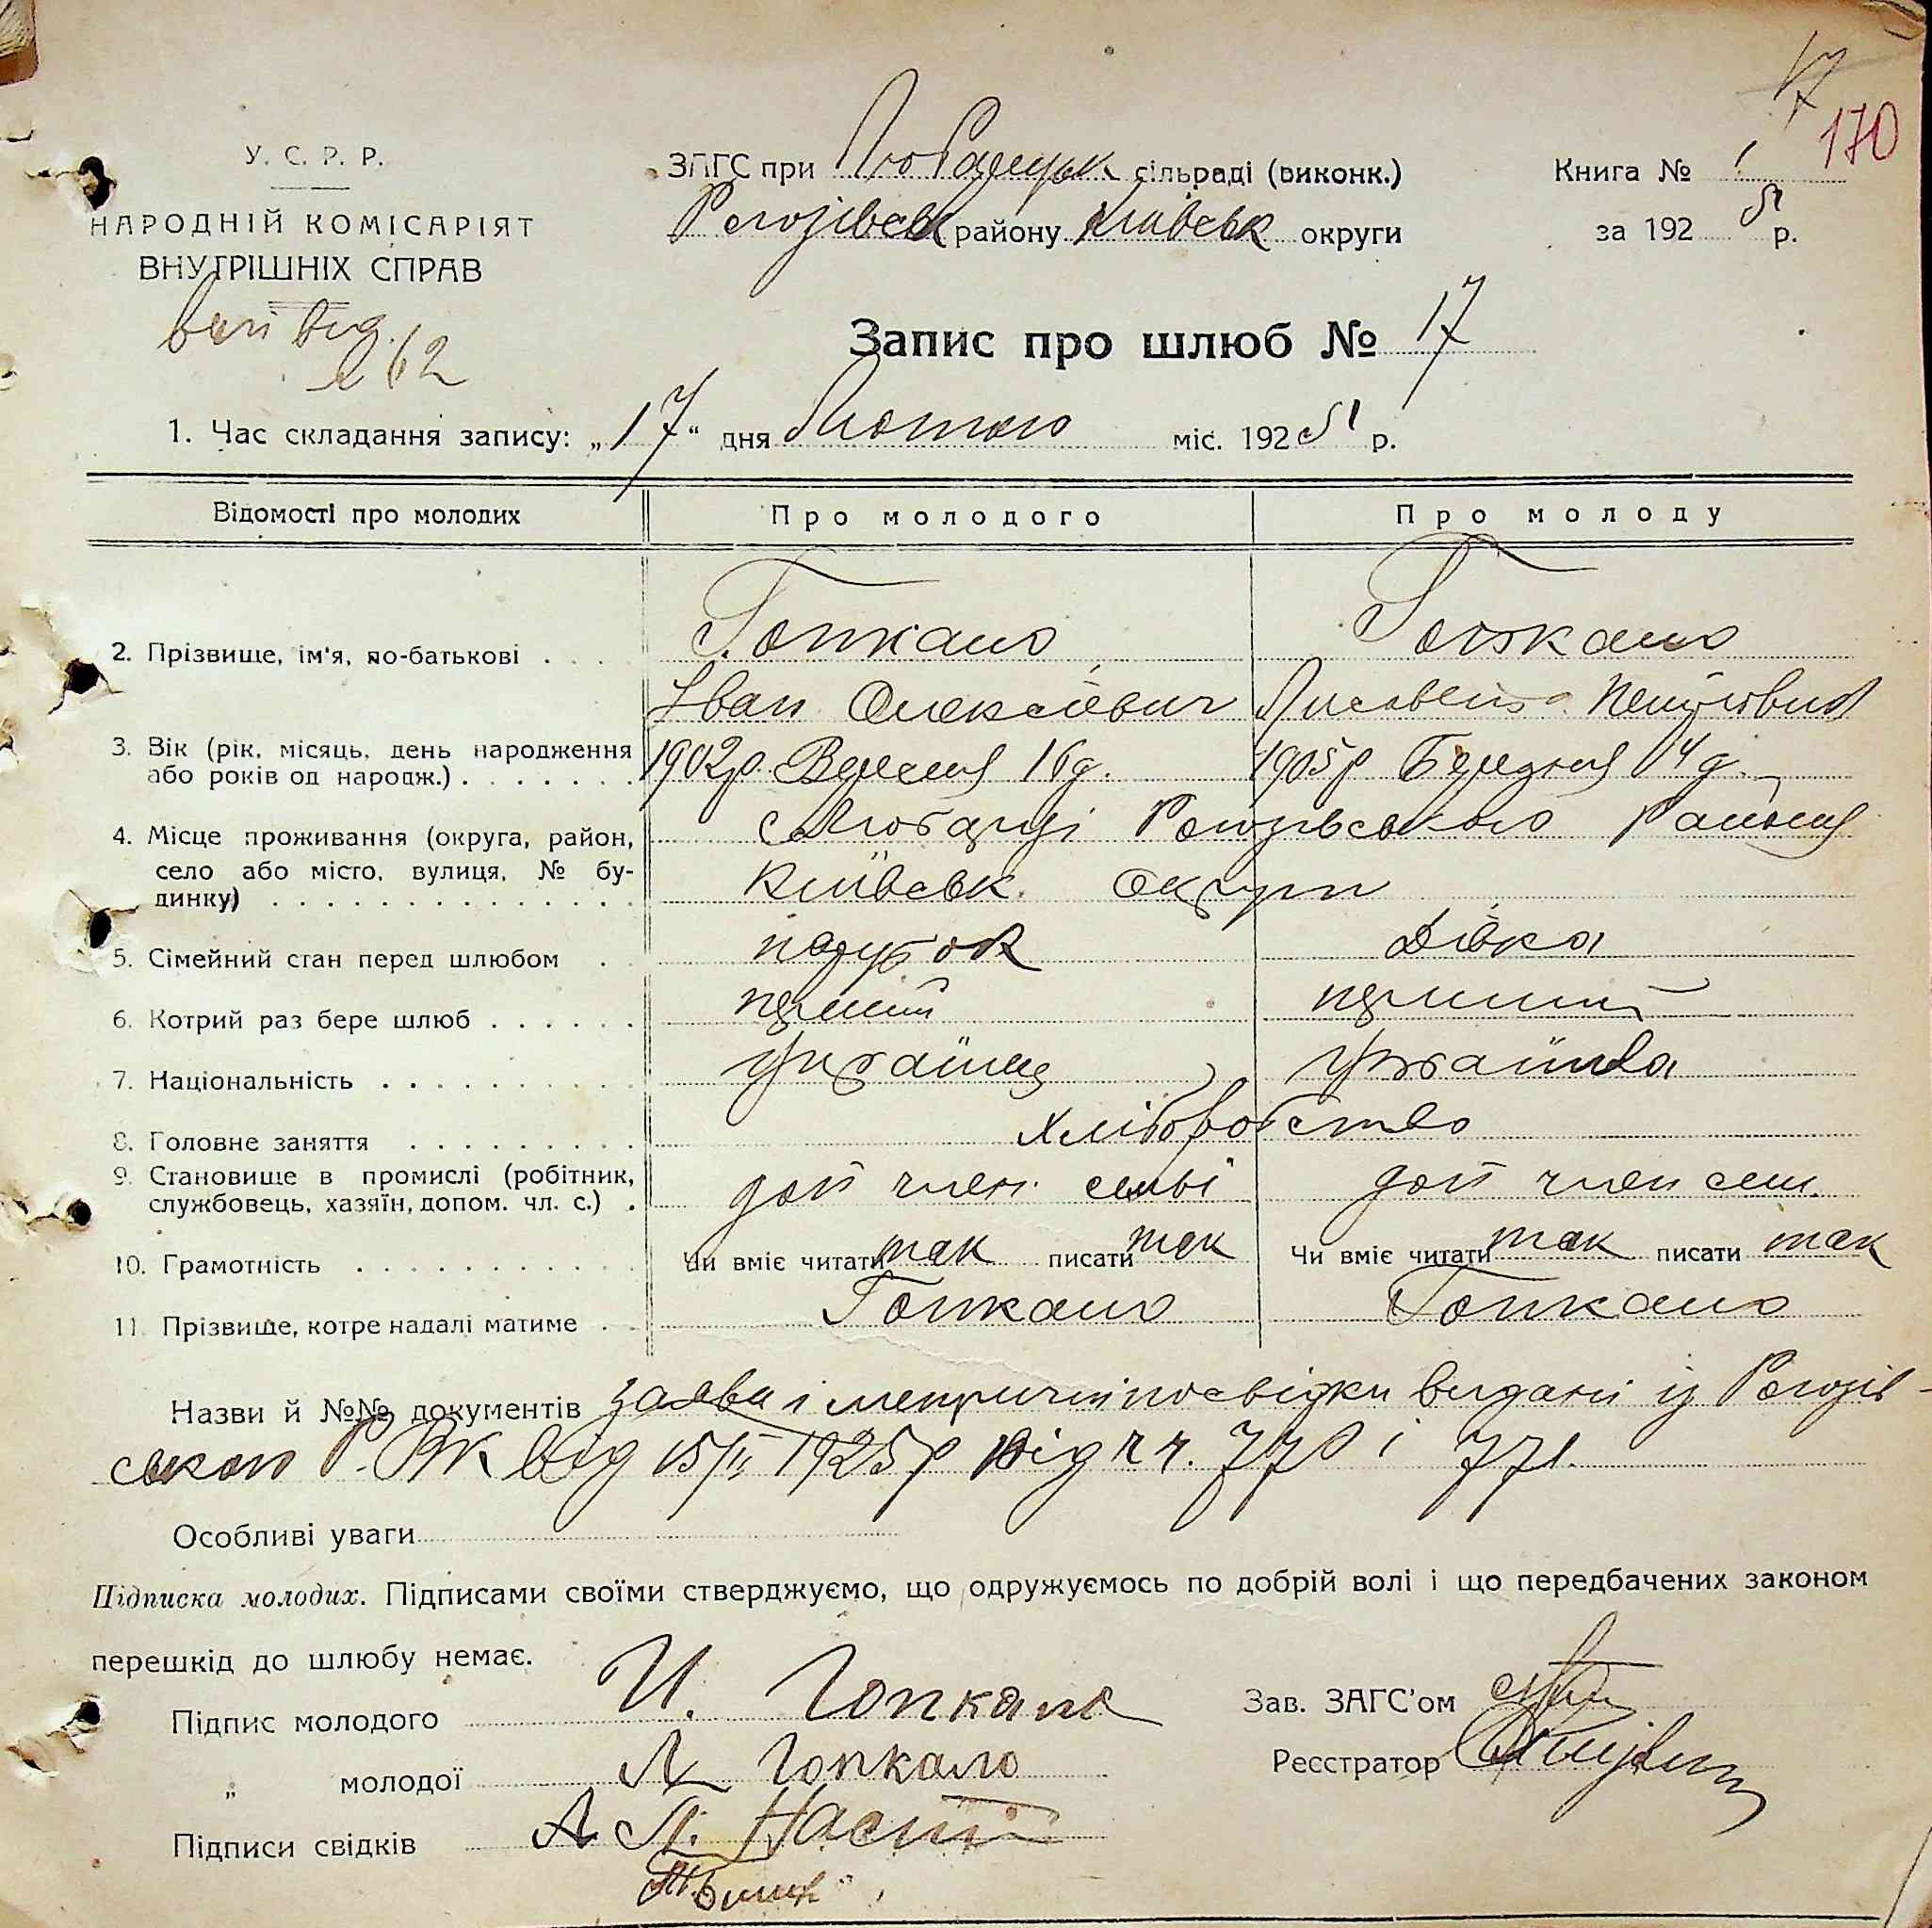 17
170
У. С. Р. Р.
НАРОДНІЙ КОМІСАРІЯТ
ВНУТРІШНІХ СПРАВ
ЗАГС при Любарецьк сільраді (виконк.)
Рогозівськ району Київськ округи
Книга № 1
за 1925 р.
62
Запис про шлюб № 17
1. Час складання запису: „17“ дня Лютого міс. 1925 р.
Відомості про молодих Про молодого Про молоду
2. Прізвище, ім'я, по-батькові . . . Гопкало Гопкало
Іван Олексієвич Лисавета Петровна
3. Вік (рік, місяць, день народження
або років од народж.) . . . . . . . 1902р. Вересня 16д. 1905р Березня 4д.
4. Місце проживання (округа, район, с Любарці Рогозівського Району
село або місто, вулиця, № бу-
динку) . . . . . . . . . . . . . . Київськ. Округи
5. Сімейний стан перед шлюбом . . парубок Дівка
6. Котрий раз бере шлюб . . . . . . перший перший
7. Національність . . . . . . . . . . українец українка
8. Головне заняття . . . . . . . . . хліборобство
9. Становище в промислі (робітник,
службовець, хазяїн, допом. чл. с.) . доп член семьі доп член сем.
10. Грамотність . . . . . . . . . . . Чи вміє читати так писати так Чи вміє читати так писати так
11. Прізвище, котре надалі матиме . . Гопкало Гопкало
Назви й №№ документів заява і метричні посвідки видані із Рогозів-
ського Р.В.К від 15/II 1925р під чч. 770 і 771.
Особливі уваги
Підписка молодих. Підписами своїми стверджуємо, що одружуємось по добрій волі і що передбачених законом
перешкід до шлюбу немає.
Підпис молодого И. Гопкало
Зав. ЗАГС'ом
„ молодої Л Гопкало
Реєстратор
Підписи свідків